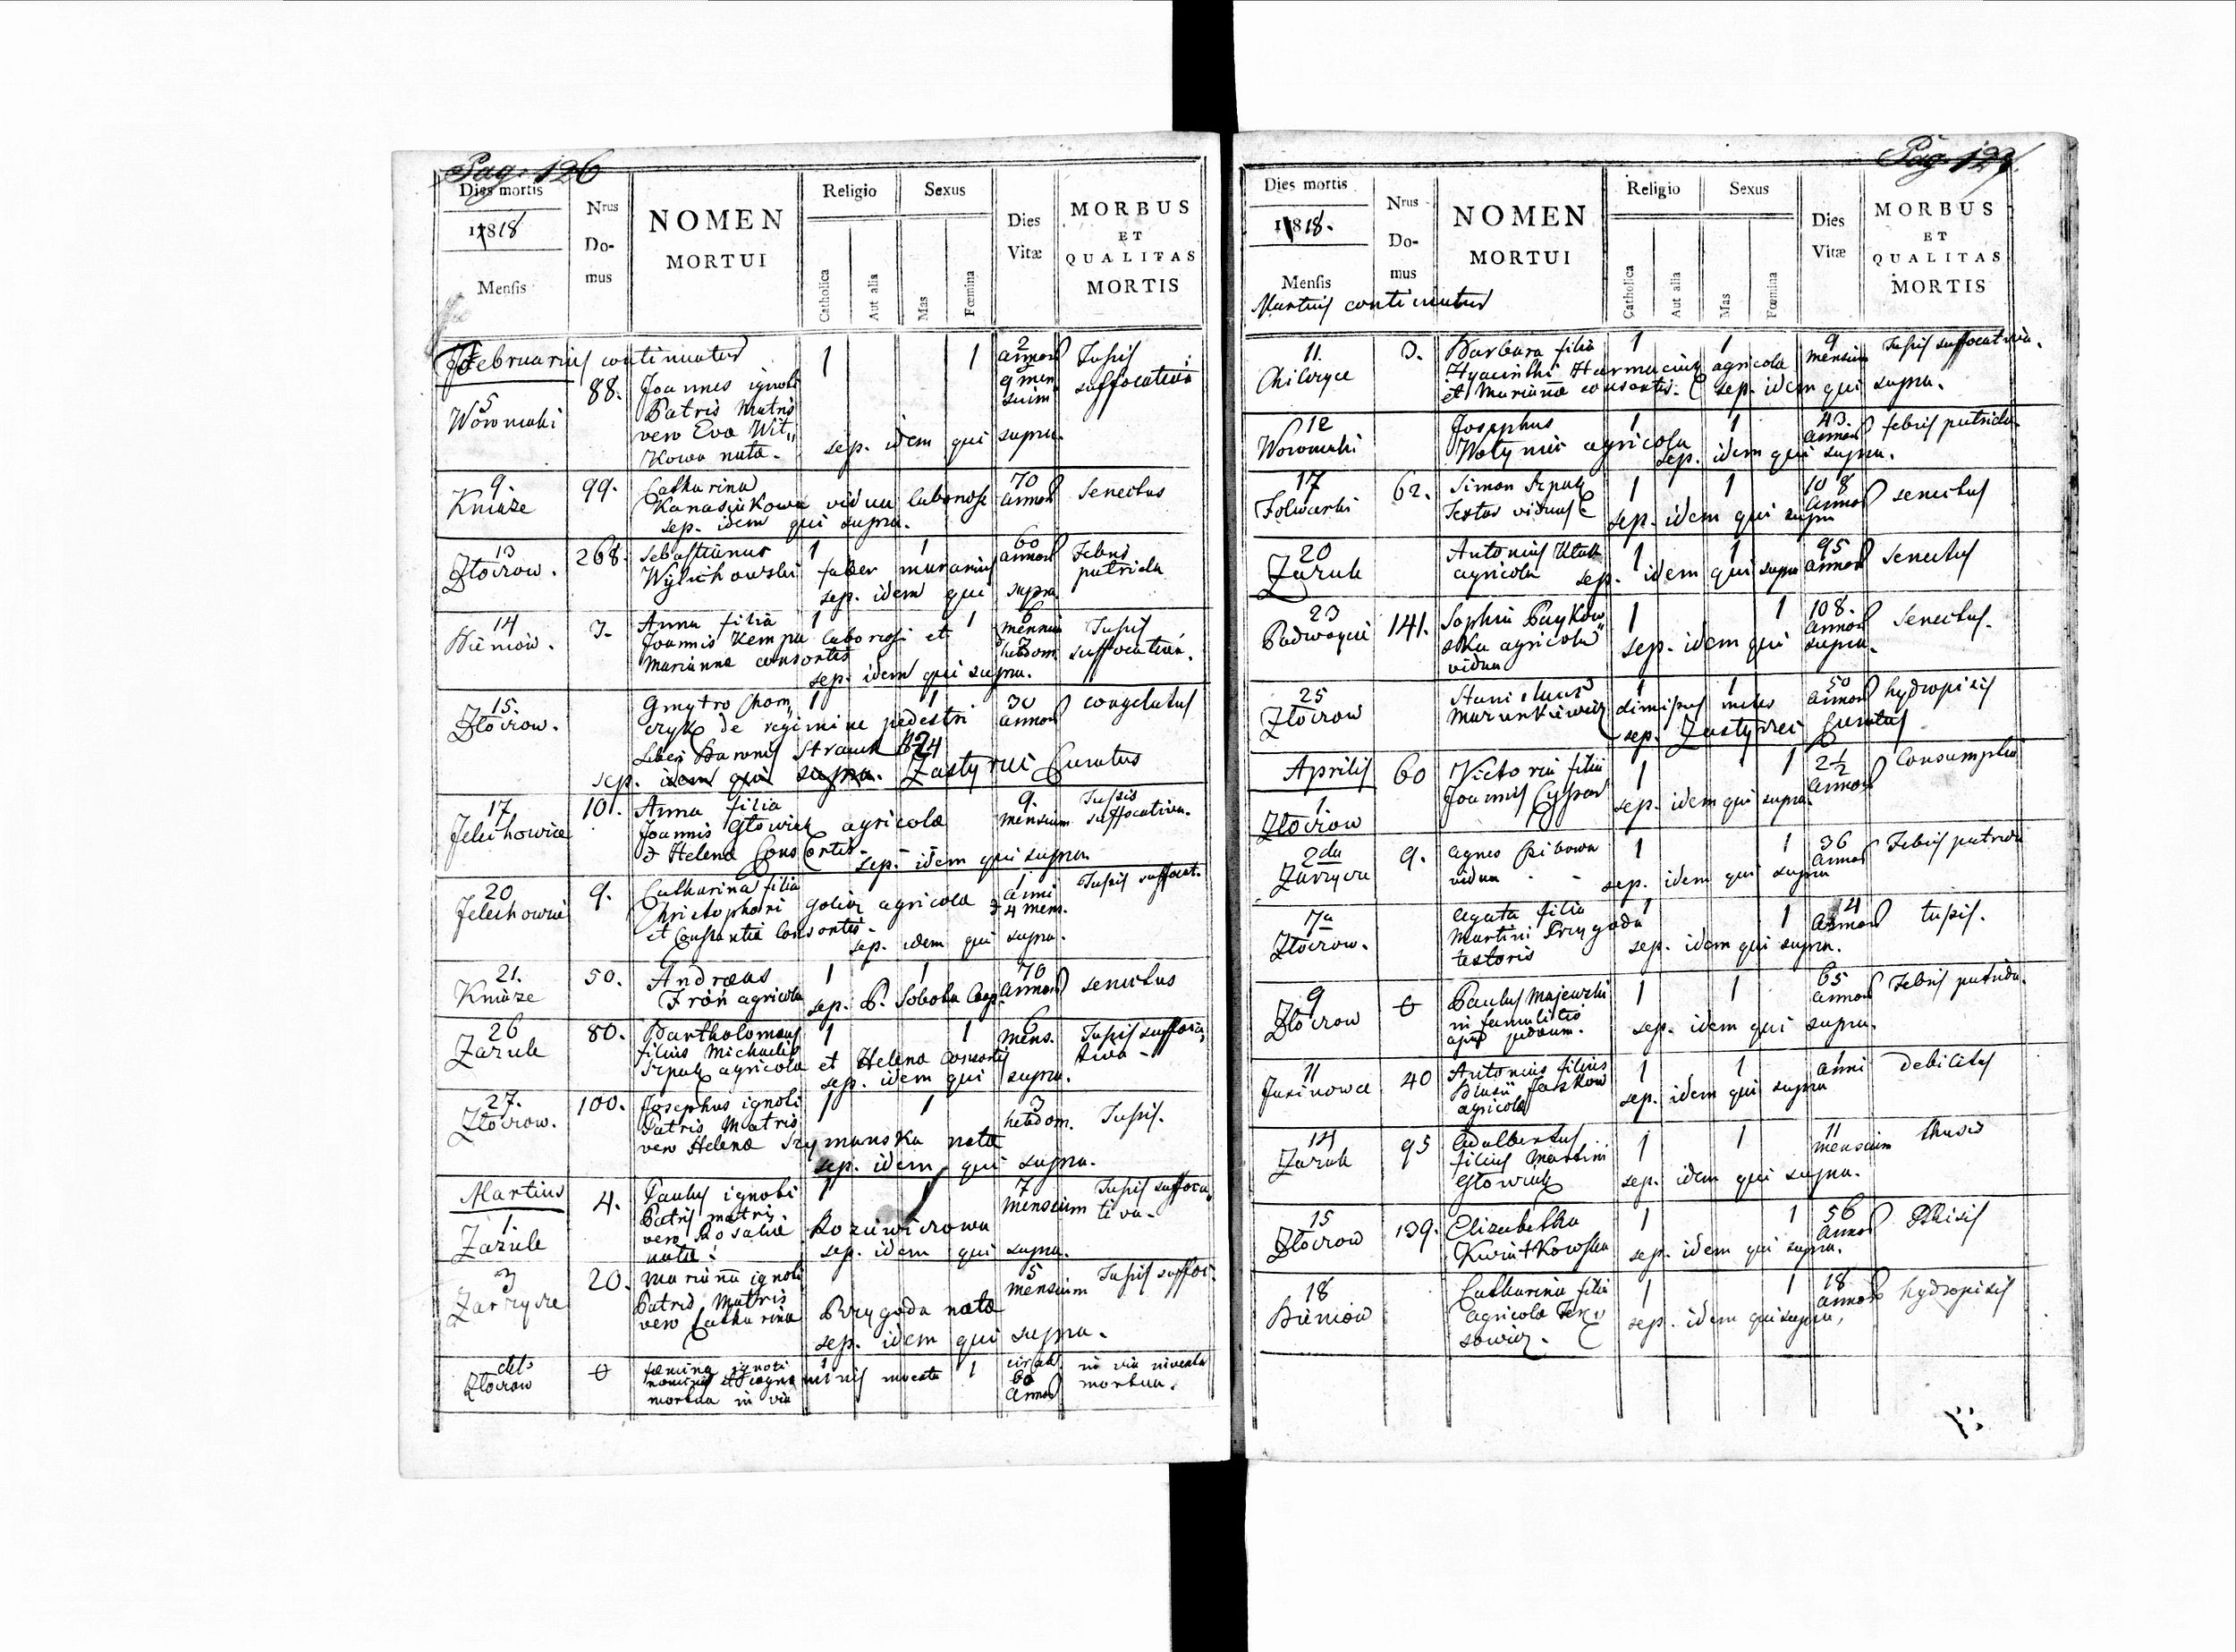 Pag. 126
Dies mortis
1818
Mensis
Nrus Do-mus
NOMEN MORTUI
Religio
Catholica
Aut alia
Sexus
Mas
Fœmina
Dies Vitæ
MORBUS ET QUALITAS MORTIS
Februarius continuatur
5
Woroniaki
88.
Joannes ignoti
Patris Matris
vero Eva Wit„
kowa nata.
1
1
2
annor
9 men
sium
Tussis
suffocativa
sep. idem qui supra.
9.
Kniaze
99.
Catharina
Kanasiukowa vidua laboriosi
sep. idem qui supra.
70
annor
senectus
13
Złoczow.
268.
Sebastianus
Wyhichowski faber murarius
sep. idem qui supra
1
1
60
annor
Febris
putrida
14
Bieniow.
3.
Anna filia
Joannis Kempa laboriosi et
Marianna consortis
sep. idem qui supra.
1
1
6
mensium
hebdom.
Tussis
suffocativa.
15.
Złoczow.
Gmytro Chom„
czyk de regimine pedestri
Liberi Baronis Strauch 24
sep. idem qui supra. Zastyrei Curatus
1
1
30
annor
congelatus
17
Jelechowice
101.
Anna filia
Joannis Głowiak agricola
& Helena Consortis.
sep. idem qui supra.
9.
mensium
Tussis
suffocativa.
20
Jelechowice
9.
Catharina filia
Christophori Golicz agricola
et Constantia Consortis.
sep. idem qui supra.
1
anni
4 mens.
Tussis suffocat.
21.
Kniaze
50.
Andreas
Froń agricola
sep. P. Sobota Coop.
1
1
70
annor
senectus
26
Zazule
80.
Bartholomeus
filius Michaelis
Szpak agricola et Helena Consortis
sep. idem qui supra.
1
1
6
mens.
Tussis suffoca„
tiva
27.
Złoczow.
100.
Josephus ignoti
Patris Matris
vero Helena Szymanska nata
sep. idem qui supra.
1
1
3
hebdom.
Tussis.
Martius
1.
Zazule
4.
Paulus ignoti
Patris matris
vero Rosalia Roziewiczowa
nata.
sep. idem qui supra.
1
1
7
mensium
Tussis suffoca„
tiva.
3
Zarzycze
20.
Marianna ignoti
Patris Matris
vero Catharina Przygoda nata
sep. idem qui supra.
5
mensium
Tussis suffoc.
Złoczow
0
fœmina ignoti
nominis et cognominis
mortua in via
1
1
circa
60
annor
in via inventa
mortua.
Pag. 127.
Dies mortis
1818.
Mensis
Nrus Do-mus
NOMEN MORTUI
Religio
Catholica
Aut alia
Sexus
Mas
Fœmina
Dies Vitæ
MORBUS ET QUALITAS MORTIS
Martius continuatur
11.
Chilczyce
3.
Barbara filia
Hyacinthi Harmaciuk agricola
et Marianna consortis. sep. idem qui supra.
1
1
9
mensium
Tussis suffocativa.
12
Woroniaki
Josephus
Wołyniec agricola
sep. idem qui supra.
1
1
43.
annor
febris putrida
17
Folwarki
62.
Simon Szpak
Textor viduus
sep. idem qui supra
1
1
108
annor
senectus
20
Zazule
Antonius
agricola sep. idem qui supra
1
1
95
annor
senectus
23
Podwoycie
141.
Sophia Baykow„
ska agricola
vidua
sep. idem qui supra.
1
1
108.
annor
Senectus.
25
Złoczow
Stanislaus
Marunkiewicz dimissus miles
sep. Zastyrei Curatus
1
1
50
annor
hydropisis
Aprilis
1.
Złoczow
60
Victoria filia
Joannis Cysar
sep. idem qui supra.
1
1
2½
annor
Consumptio
2da
Zarzycze
9.
Agnes Pibowa
vidua
sep. idem qui supra
1
1
36
annor
Febris putrida
7a
Złoczow.
Agata filia
Martini Przygoda
textoris
sep. idem qui supra.
1
1
4
annor
tussis.
9
Złoczow
0
Paulus Majewski
in famulitio
apud judæum.
sep. idem qui supra.
1
1
65
annor
Febris putrida.
11
Jasinowce
40
Antonius filius
Blasii Jaskow
agricola
sep. idem qui supra
1
1
anni
debilitas
14
Zazule
95
Adalbertus
filius Martini
Głowiak
sep. idem qui supra.
1
1
11
mensium
thusis
15
Złoczow
139.
Elizabetha
Kwiatkowska
sep. idem qui supra.
1
1
56
annor
Pthisis
18
Bieniow
Catharina filia
agricola Ten„
sowicz.
sep. idem qui supra,
1
1
18
annor
hydropisis